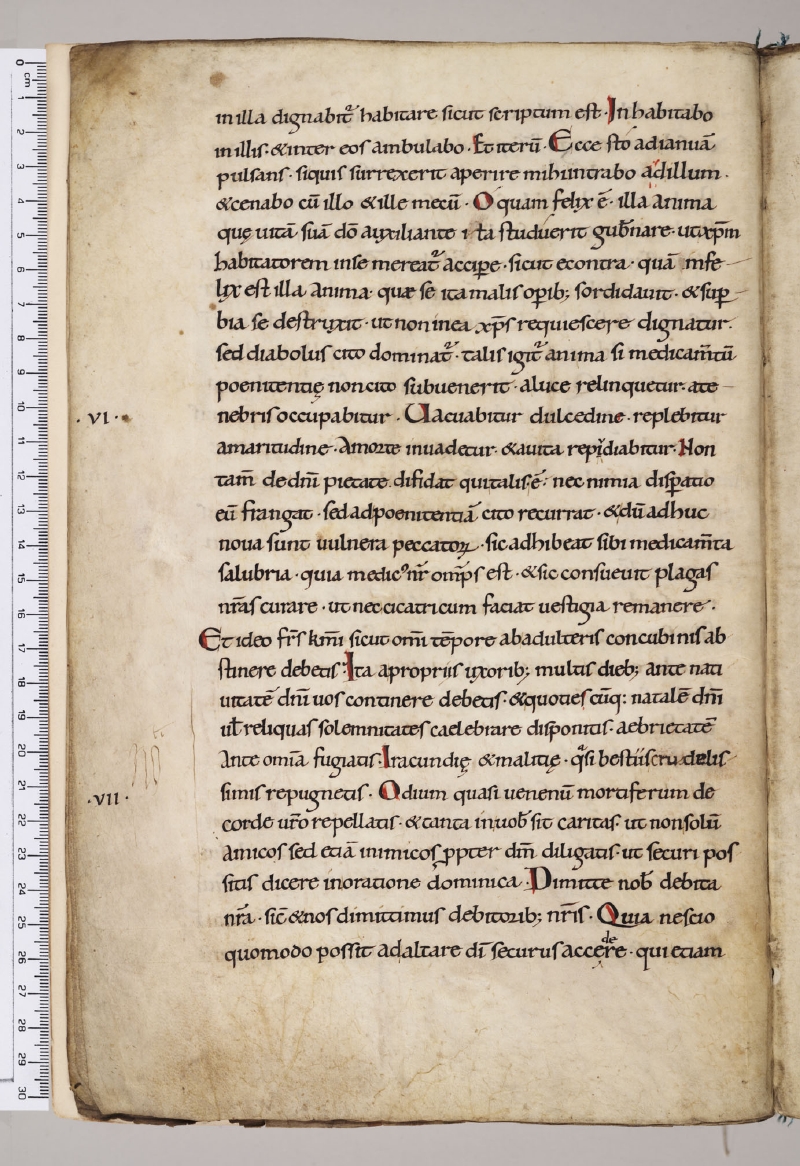 in illa dignabit᷑ habitare sicut scriptum est· Inhabitabo
in illis· & inter eos ambulabo· Et iterū· Ecce sto ad ianuā
pulsans· siquis surrexerit aperire mihi intrabo ad illum·
& cenabo cū illo & ille mecū· O quam felix ē illa anima
quę uitā suā dō auxiliante ita studuerit gub̄nare· ut xp̄m
habitatorem in se mereat᷑ accipe· sicut econtra· quā infe
lix est illa anima· quæ se ita malis opib; sordidauit· & sup
bia se destruxit· ut non in ea xp̄s requiescere dignatur·
sed diabolus cito dominat᷑· talis igit᷑ anima si medicam̄tū
poenitentię non cito subuenerit· a luce relinquetur· a te
nebris occupabitur· Uacuabitur dulcedine· replebitur
·VI·
amaritudine· Amorte inuadetur· & auita repudiabitur· Non
tam̄ de dn̄i pietate difidat qui talis ē· nec nimia dispatio
eū frangat· sed ad poenitentiā cito recurrat· & dū adhuc
noua sunt uulnera peccatoꝝ· sic adhibeat sibi medicam̄ta
salubria· quia medicꝰ nr̄ omp̄s est· & sic consueuit plagas
nr̄as curare· ut nec cicatricum faciat uestigia remanere·
Et ideo fr̄s km̄i sicut omī tēpore ab adulteris concubinis ab
stinere debetis· Ita a propriis uxorib; multis dieb; ante nati
uitatē dn̄i uos continere debetis· & quotiescūq: natalē dn̄i
ul̄ reliquas solemnitates caelebrare disponitis· aebrietatē
Ante om̄ia fugiatis· Iracundię & malitię· qᵃsi bestiis crudelis
simis repugnetis· Odium quasi uenenū mortiferum de
·VII·
corde ur̄o repellatis· & tanta in uob̄ sit caritas· ut non solū
amicos sed etiā inimicos ꝓpter dm̄ diligatis· ut securi pos
sitis dicere in oratione dominica· Dimitte nob̄ debita
nr̄a· sic̄ & nos dimittimus debitorib; nr̄is· Quia nescio
quomodo possit ad altare dī securus accedere· qui etiam